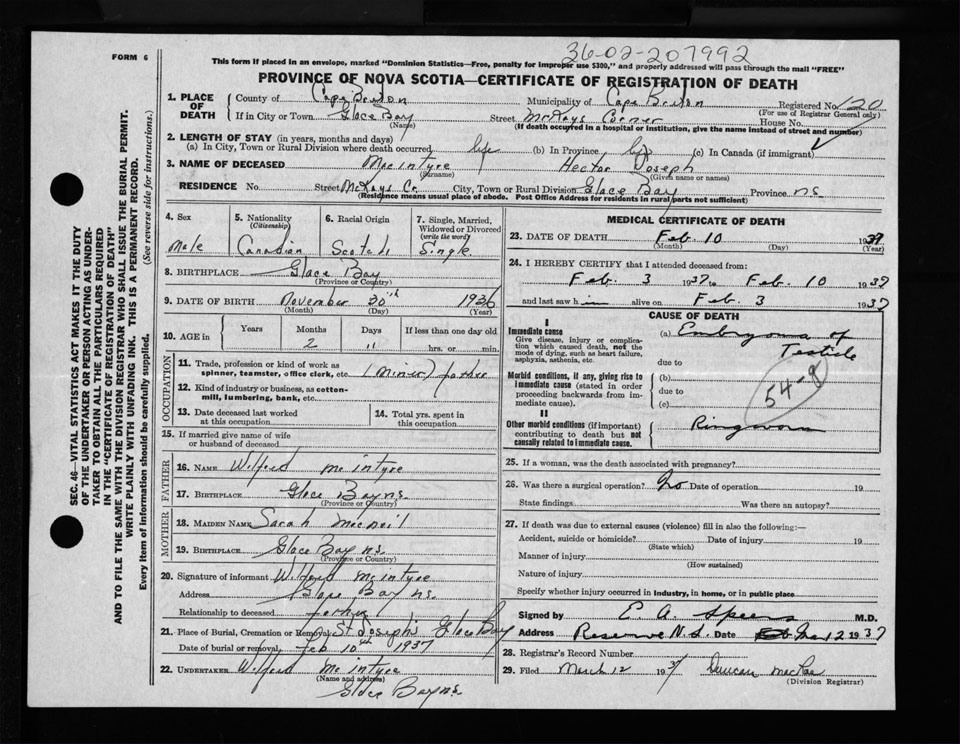 36-02-207992
FORM 6
This form if placed in an envelope, marked "Dominion Statistics—Free, penalty for improper use $300," and properly addressed will pass through the mail "FREE"
PROVINCE OF NOVA SCOTIA—CERTIFICATE OF REGISTRATION OF DEATH
SEC. 46—VITAL STATISTICS ACT MAKES IT THE DUTY
OF THE UNDERTAKER OR PERSON ACTING AS UNDER-
TAKER TO OBTAIN ALL THE PARTICULARS REQUIRED
IN THE "CERTIFICATE OF REGISTRATION OF DEATH"
AND TO FILE THE SAME WITH THE DIVISION REGISTRAR WHO SHALL ISSUE THE BURIAL PERMIT.
WRITE PLAINLY WITH UNFADING INK. THIS IS A PERMANENT RECORD.
Every item of information should be carefully supplied. (See reverse side for instructions.)
1. PLACE OF DEATH County of Cape Breton Municipality of Cape Breton Registered No. 120
(For use of Registrar General only)
If in City or Town Glace Bay Street McKays Corner House No.
(Name) (If death occurred in a hospital or institution, give the name instead of street and number)
2. LENGTH OF STAY (in years, months and days)
(a) In City, Town or Rural Division where death occurred life (b) In Province life (c) In Canada (if immigrant)
3. NAME OF DECEASED MacIntyre Hector Joseph
(Surname) (Given name or names)
RESIDENCE No. Street McKays Cr. City, Town or Rural Division Glace Bay Province N.S.
(Residence means usual place of abode. Post Office Address for residents in rural parts not sufficient)
4. Sex 5. Nationality (Citizenship) 6. Racial Origin 7. Single, Married, Widowed or Divorced (write the word)
Male Canadian Scotch Single
8. BIRTHPLACE Glace Bay
(Province or Country)
9. DATE OF BIRTH November 30th 1936
(Month) (Day) (Year)
10. AGE in Years Months Days If less than one day old
2 11 hrs. or min.
OCCUPATION
11. Trade, profession or kind of work as spinner, teamster, office clerk, etc. (Miner) father
12. Kind of industry or business, as cotton-mill, lumbering, bank, etc.
13. Date deceased last worked at this occupation
14. Total yrs. spent in this occupation
15. If married give name of wife or husband of deceased
FATHER
16. NAME Wilfred McIntyre
17. BIRTHPLACE Glace Bay N.S.
(Province or Country)
MOTHER
18. MAIDEN NAME Sarah MacNeil
19. BIRTHPLACE Glace Bay N.S.
(Province or Country)
20. Signature of informant Wilfred McIntyre
Address Glace Bay N.S.
Relationship to deceased father
21. Place of Burial, Cremation or Removal St Joseph's Glace Bay
Date of burial or removal, Feb 10th 1937
22. UNDERTAKER Wilfred McIntyre
(Name and address)
Glace Bay N.S.
MEDICAL CERTIFICATE OF DEATH
23. DATE OF DEATH Feb. 10 1937
(Month) (Day) (Year)
24. I HEREBY CERTIFY that I attended deceased from:
Feb. 3 1937 to Feb. 10 1937
and last saw him alive on Feb. 3 1937
CAUSE OF DEATH
I
Immediate cause (a) Embryoma of
Testicle
Give disease, injury or complication which caused death, not the mode of dying, such as heart failure, asphyxia, asthenia, etc. due to
Morbid conditions, if any, giving rise to immediate cause (stated in order proceeding backwards from immediate cause). (b)
due to
(c)
II
Other morbid conditions (if important) contributing to death but not causally related to immediate cause. Ringworm
25. If a woman, was the death associated with pregnancy?
26. Was there a surgical operation? No Date of operation 19
State findings Was there an autopsy?
27. If death was due to external causes (violence) fill in also the following:—
Accident, suicide or homicide? Date of injury 19
(State which)
Manner of injury
(How sustained)
Nature of injury
Specify whether injury occurred in industry, in home, or in public place
Signed by E. A. Speers M.D.
Address Reserve N.S. Date Mar 12 1937
28. Registrar's Record Number
29. Filed March 12 1937 Duncan MacRae
(Division Registrar)